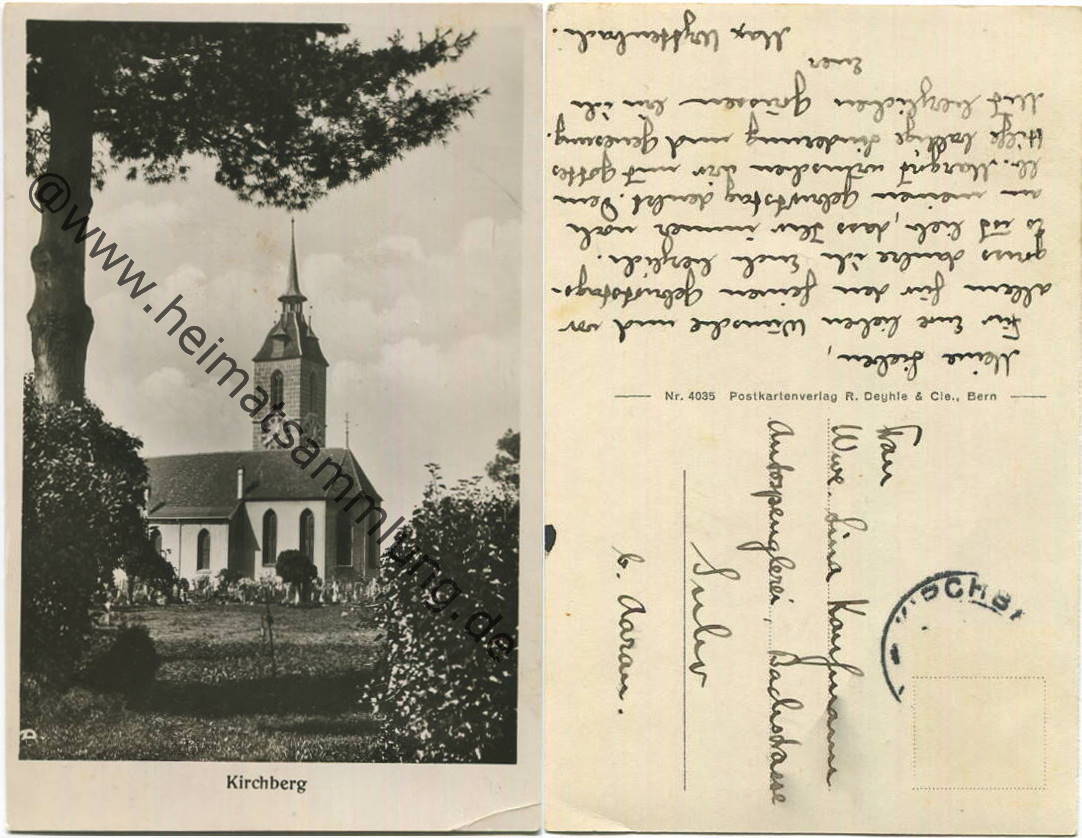 @www.heimatsammlung.de
D.
Kirchberg
Meine Lieben,
Für Eure lieben Wünsche und vor
allem für den feinen Geburtstags-
gruss danke ich Euch herzlich.
Es ist lieb, dass Ihr immer noch
an meinen Geburtstag denkt. Dem
lb. Margrit wünschen wir mit Gottes
Hilfe baldige Linderung und Genesung.
Mit herzlichen Grüssen bin ich
Euer
Max Wyttenbach.
Nr. 4035 Postkartenverlag R. Deyhle & Cie., Bern
Frau
Wwe. Lina Kaufmann
Autospenglerei, Bachstrasse
Suhr
b. Aarau.